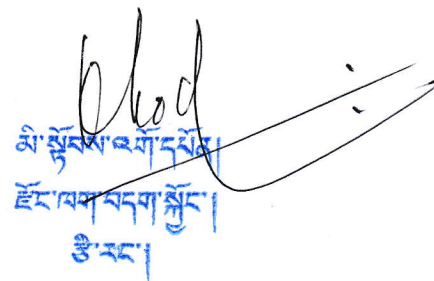 མི་སྟོབས་འགོ་དཔོན།
རྫོང་ཁག་བདག་སྐྱོང་།
རྩི་རང་།